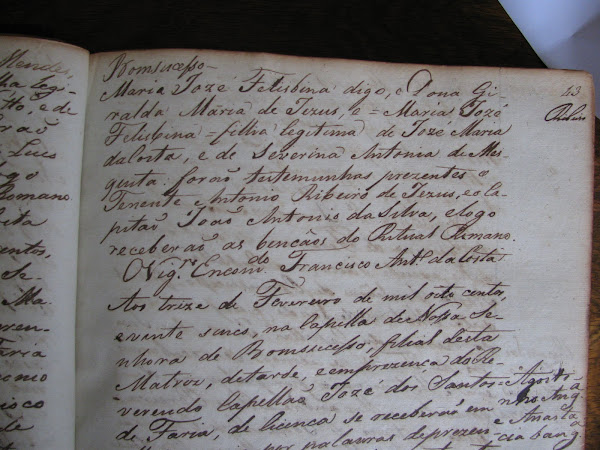 Mendes,
lha legi-
tto, e de
braõ
Luis
go
Romano.
sita
entos,
Se-
Ma
eren-
Faria
onio
isco
de
Bomsucesso
43
Maria Jozé Felisbina digo, e Dona Gi-
ralda Maria de Jezus, e = Maria Jozé
Felisbina = filha legitima de Jozé Maria
da Costa, e de Severina Antonia de Mes-
quita: foraõ testemunhas prezentes o
Tenente Antonio Ribeiro de Jezus, e o Ca-
pitaõ Joaõ Antonio da Silva, e logo
receberaõ as bençaõs do Ritual Romano.
O Vigr.º Encom.do Francisco Ant.º da Costa
Aos treze de Fevereiro de mil oito centos,
e vinte sinco, na Capella de Nossa Se-
nhora de Bomsucesso filial desta
Matrız, de tarde, e em prezença do Re-
verendo Capellaõ Jozé dos Santos = Agosti-
de Faria, de licença se receberaõ em nho Ang.
por palavras de prezen- e Anasta
cia bang.